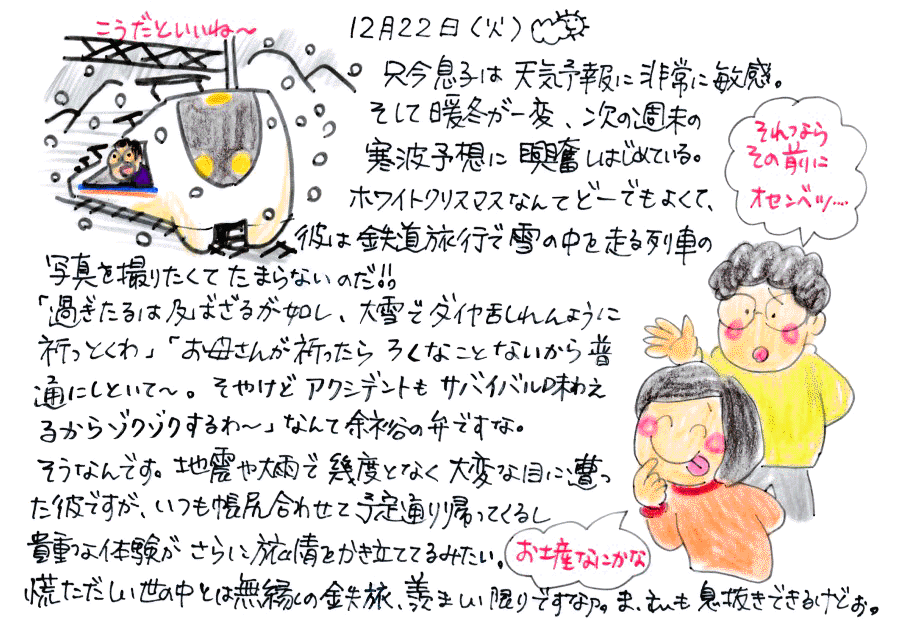 こうだといいね〜
12月22日(火)
只今息子は天気予報に非常に敏感。
そして暖冬が一変、次の週末の
寒波予想に興奮しはじめている。
ホワイトクリスマスなんてどーでもよくて、
彼は鉄道旅行で雪の中を走る列車の
写真を撮りたくてたまらないのだ!!
「過ぎたるは及ばざるが如し、大雪でダイヤ乱れんように
祈っとくわ」「お母さんが祈ったらろくなことないから普
通にしといて〜。そやけどアクシデントもサバイバル味わえ
るからゾクゾクするわ〜」なんて余裕の弁ですな。
そうなんです。地震や大雨で幾度となく大変な目に遭っ
た彼ですが、いつも帳尻合わせて予定通り帰ってくるし
貴重な体験がさらに旅情をかき立ててるみたい。
慌ただしい世の中とは無縁の鉄旅、羨ましい限りですなァ。ま、こっちも息抜きできるけどぉ。
それつなら
その前に
オセンベツ....
お土産なにかな